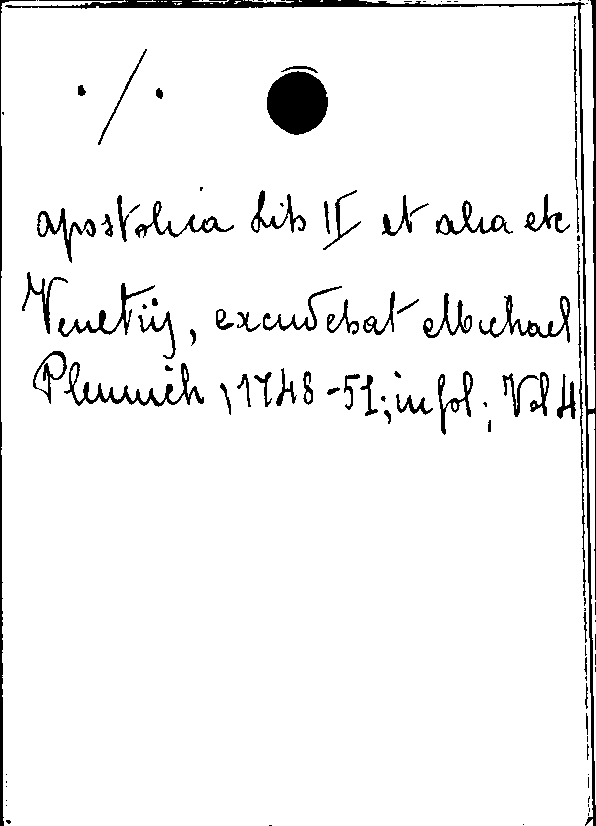 ./.
apostolica Lib II et alia etc
Venetiis, excudebat Michael
Plunnich, 1748-51; in fol.; Vol 4